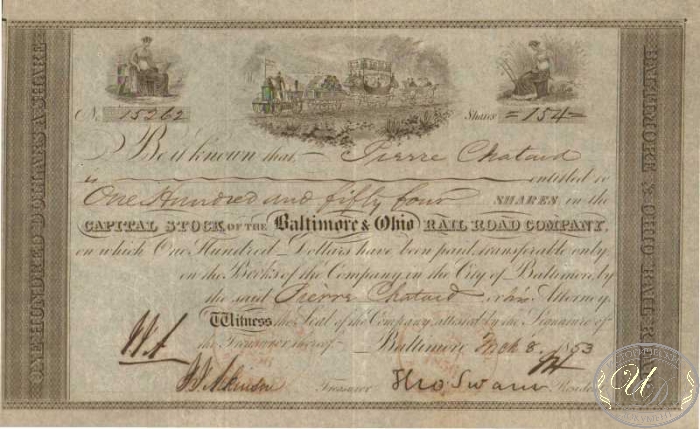 ONE HUNDRED DOLLARS A SHARE
BALTIMORE & OHIO RAIL R
No. 15262
Shares =154=
Be it known that Pierre Chatard
is entitled to
One Hundred and fifty four SHARES in the
CAPITAL STOCK, OF THE Baltimore & Ohio RAIL ROAD COMPANY,
on which One Hundred Dollars have been paid, transferable only
on the Books of the Company, in the City of Baltimore, by
the said Pierre Chatard or his Attorney.
Witness the Seal of the Company attested by the Signature of
the Treasurer thereof. Baltimore Mch 8. 1853
Treasurer Tho Swann